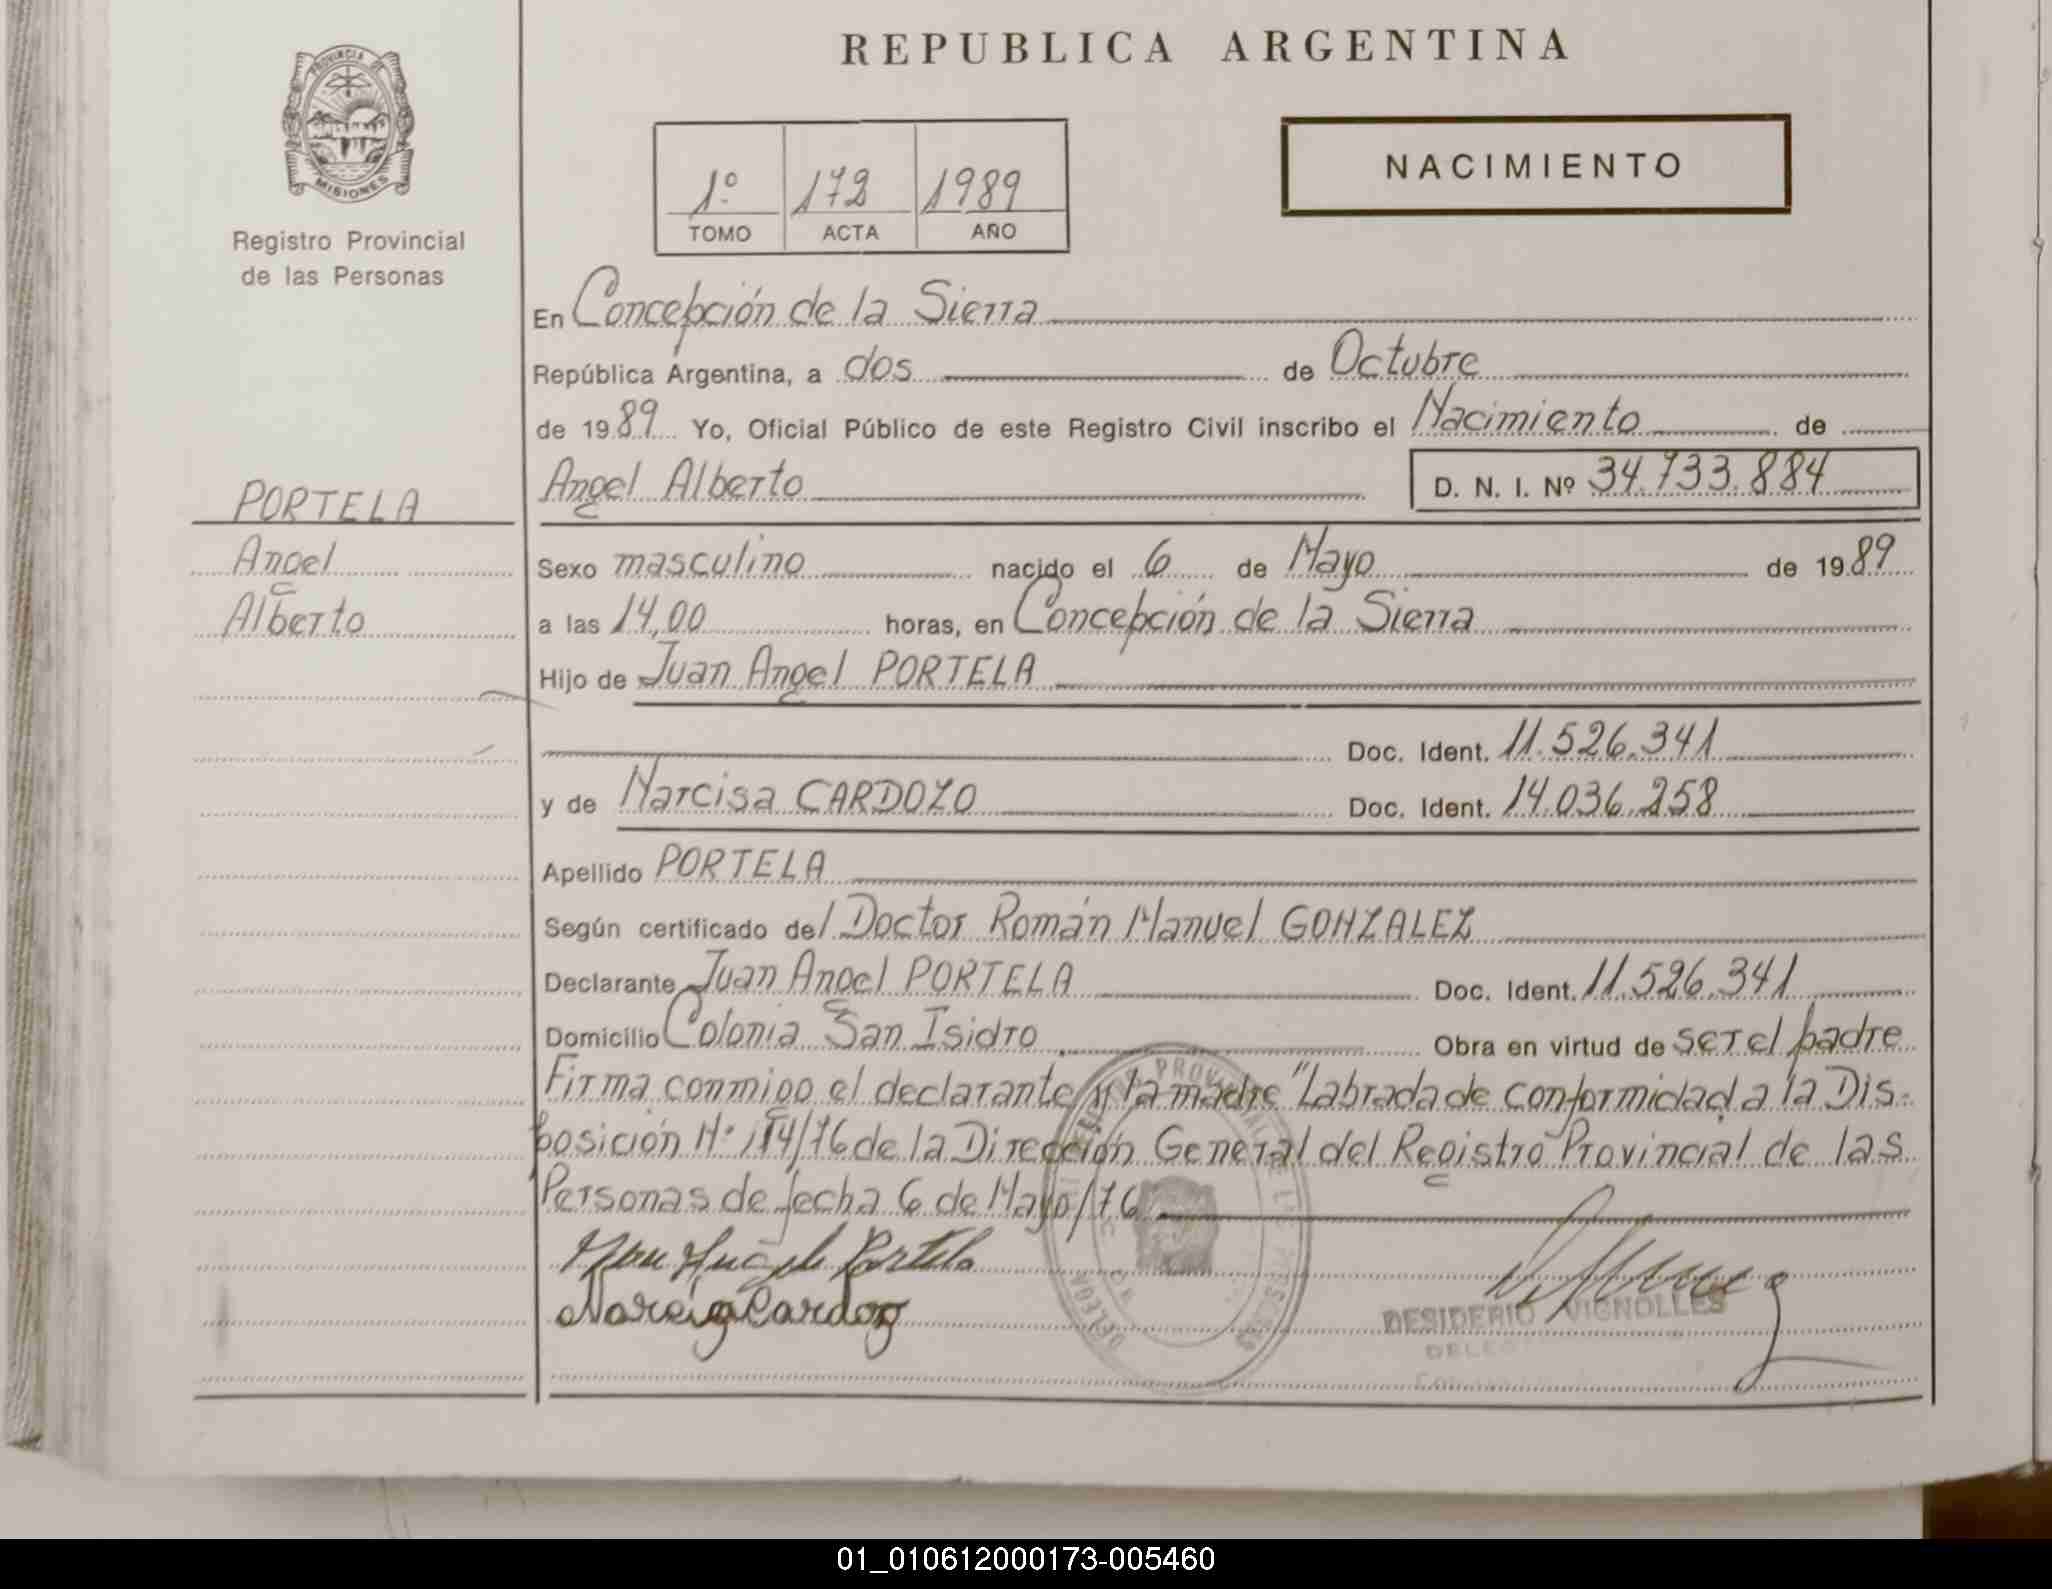 REPUBLICA ARGENTINA
PROVINCIA DE
MISIONES
Registro Provincial
de las Personas
NACIMIENTO
1º 172 1989
TOMO ACTA AÑO
En Concepción de la Sierra
República Argentina, a dos de Octubre
de 1989 Yo, Oficial Público de este Registro Civil inscribo el Nacimiento de
Angel Alberto D. N. I. Nº 34.733.884
PORTELA
Angel
Alberto
Sexo masculino nacido el 6 de Mayo de 1989
a las 14,00 horas, en Concepción de la Sierra
Hijo de Juan Angel PORTELA
Doc. Ident. 11.526.341
y de Narcisa CARDOZO Doc. Ident. 14.036.258
Apellido PORTELA
Según certificado del Doctor Román Manuel GONZALEZ
Declarante Juan Angel PORTELA Doc. Ident. 11.526.341
Domicilio Colonia San Isidro Obra en virtud de ser el padre
Firma conmigo el declarante y la madre "Labrada de conformidad a la Dis-
posición Nº 114/76 de la Dirección General del Registro Provincial de las
Personas de fecha 6 de Mayo/76
Portela
Cardozo
DESIDERIO VIGNOLLES
01_010612000173-005460